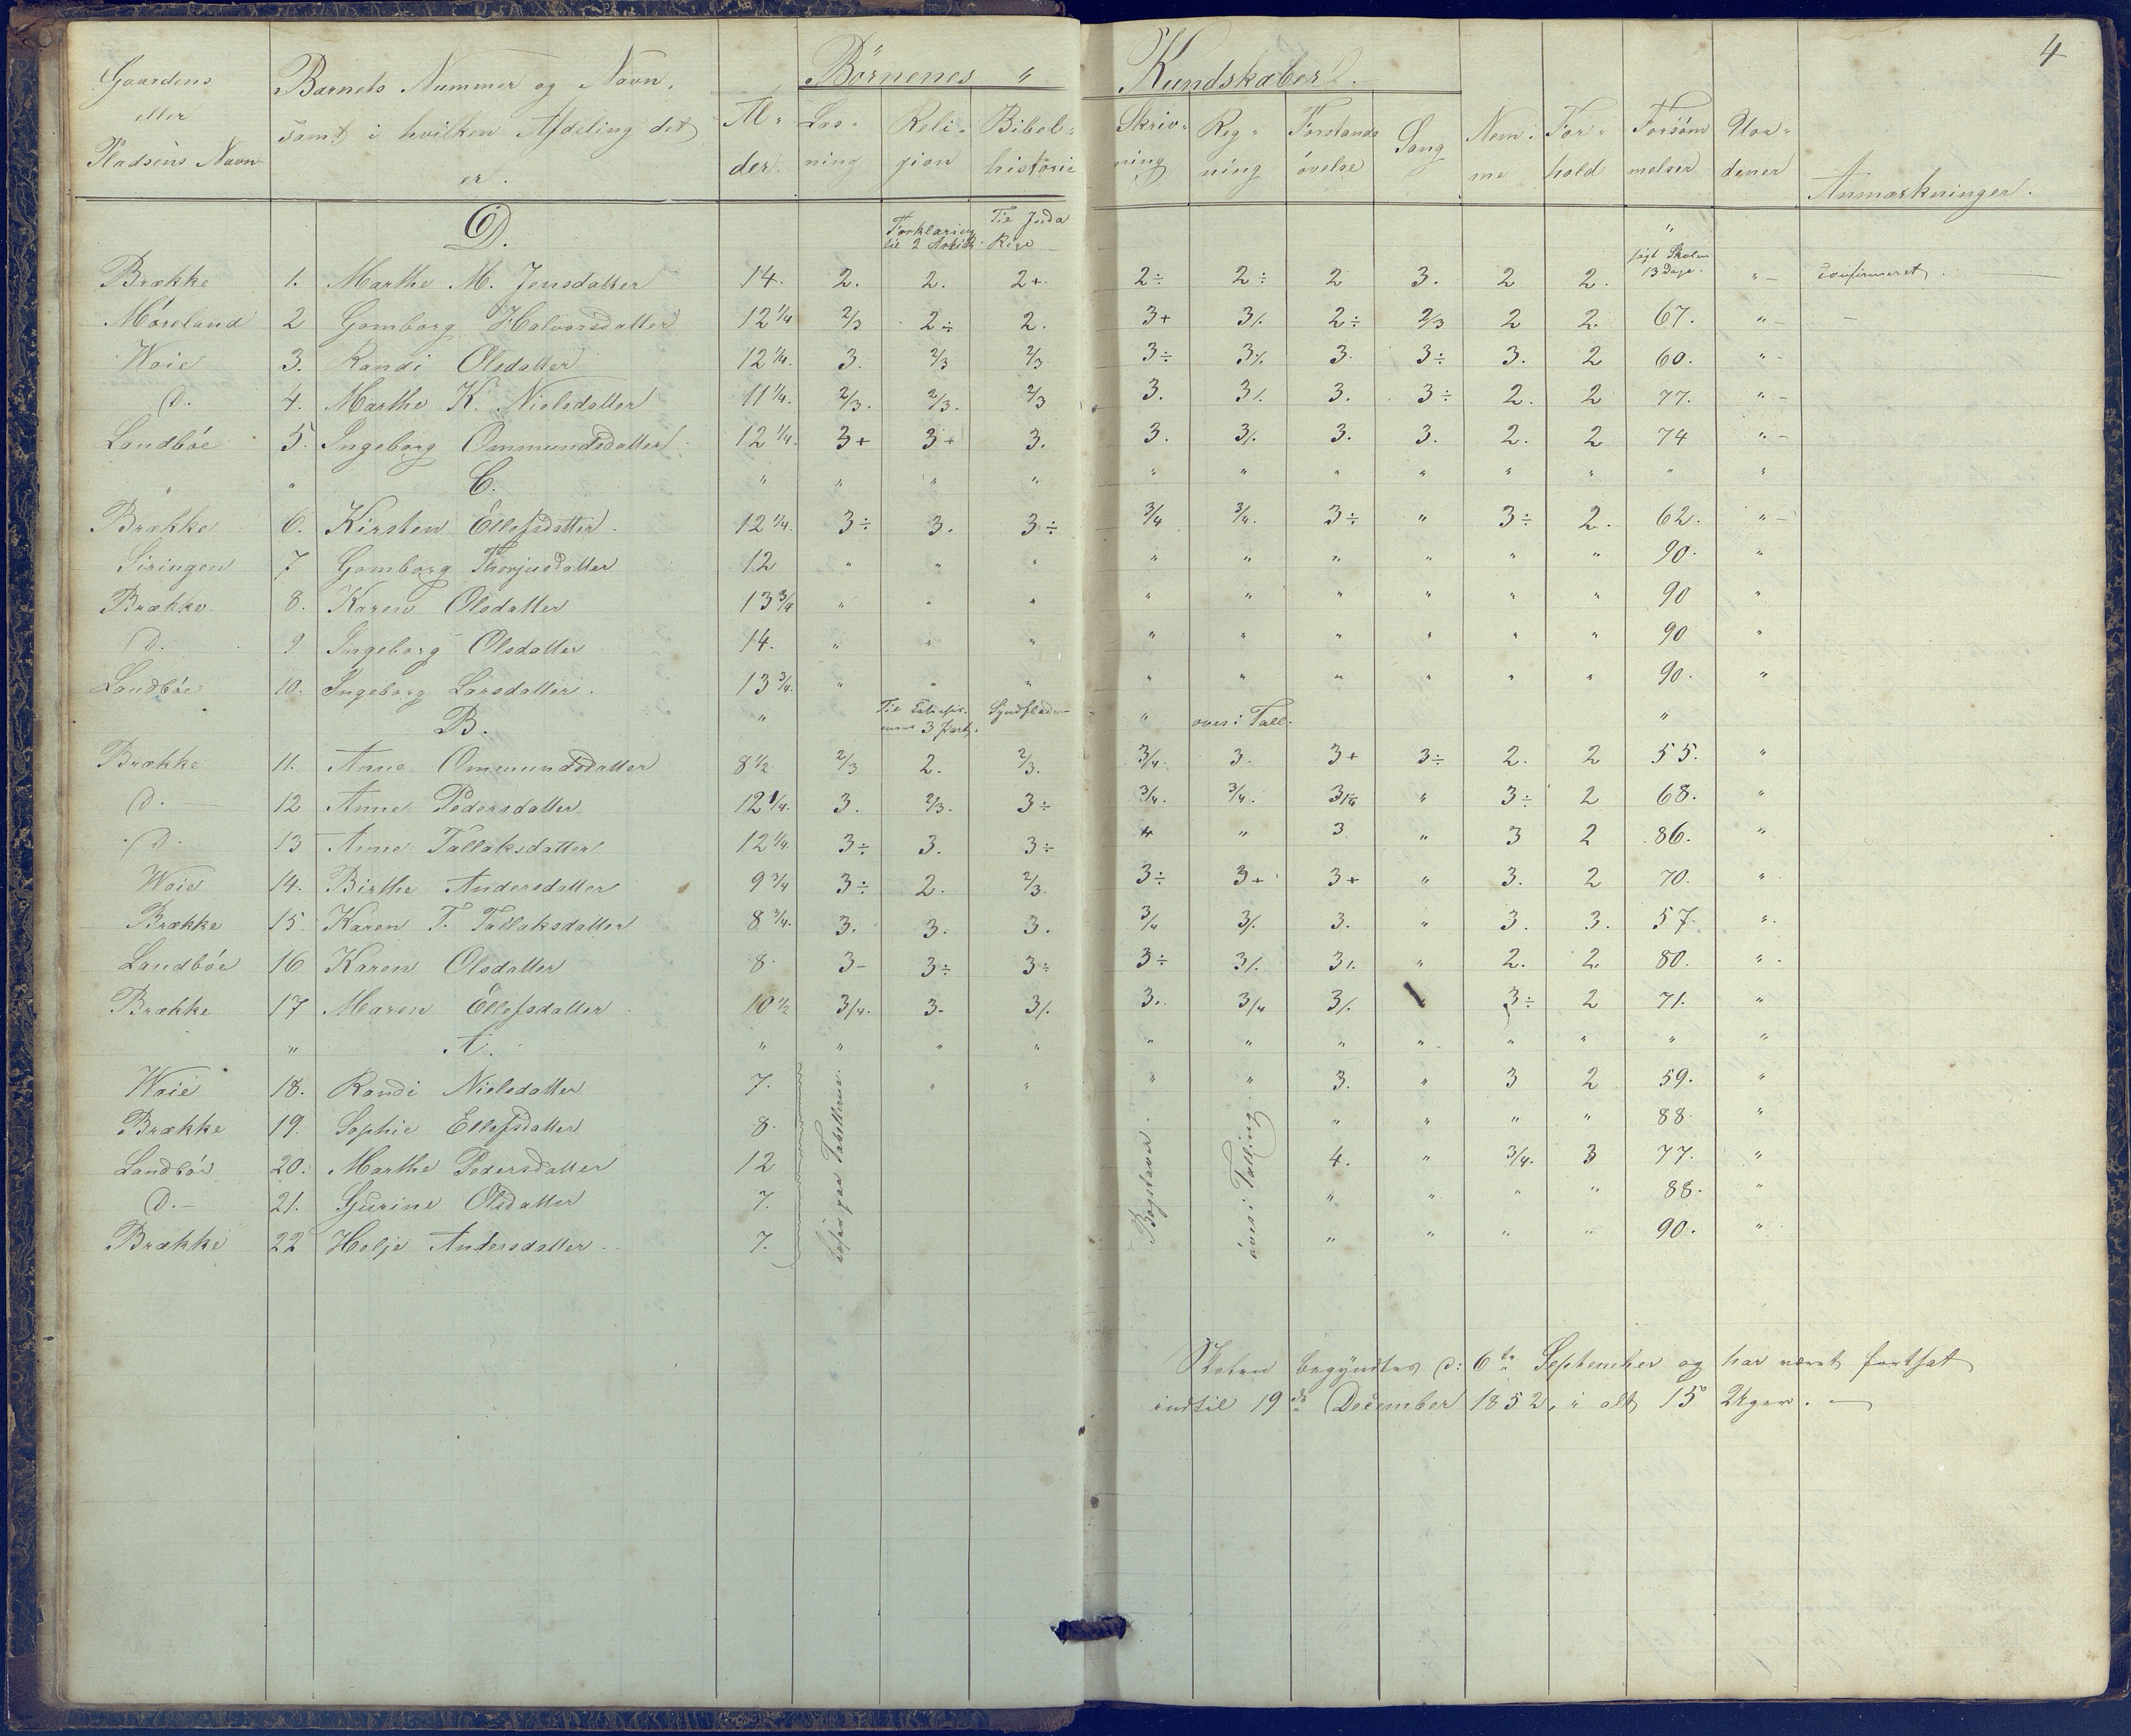 4
Gaardens eller Pladsens Navn | Barnets Nummer og Navn, samt i hvilken Afdeling det er. | Al- der. | Börnenes " Kundskaber.
Læs- ning | Reli- gion | Bibel- historie | Skriv- ning | Reg- ning | Forstands övelse | Sang | Nem- me | For- hold | Forsöm melser | Uor- dener | Anmærkninger.
D. | Forklaring til 2 Artik. | Til Juda Rige | "
Brække | 1. | Marthe M. Jensdatter | 14. | 2. | 2. | 2+. | 2÷ | 2÷ | 2 | 3. | 2 | 2. | søgt Skolen 13 Dage. | " | confirmeret.
Möreland | 2 | Gomborg Halvorsdatter | 12 1/4 | 2/3 | 2÷ | 2. | 3+ | 3/. | 2÷ | 2/3 | 2 | 2. | 67. | "
Waie | 3. | Randi Olsdatter | 12 1/4. | 3. | 2/3 | 2/3 | 3÷ | 3/. | 3. | 3÷ | 3. | 2 | 60. | "
D. | 4. | Marthe K. Nielsdatter | 11 1/4. | 2/3. | 2/3. | 2/3 | 3. | 3/. | 3. | 3÷ | 2. | 2 | 77. | "
Landböe | 5. | Ingeborg Ommundsdatter | 12 1/4. | 3+ | 3+ | 3. | 3. | 3/. | 3. | 3. | 2. | 2 | 74 | "
" | " | C. | " | " | " | " | " | " | " | " | " | " | " | "
Brække | 6. | Kirsten Ellefsdatter. | 12 1/4. | 3÷ | 3. | 3÷ | 3/4 | 3/4. | 3÷ | " | 3÷ | 2. | 62. | "
Siringen | 7 | Gomborg Thorjusdatter | 12 | " | " | " | " | " | " | " | " | " | 90. | "
Brække | 8. | Karen Olsdatter | 13 3/4 | " | " | " | " | " | " | " | " | " | 90 | "
D. | 9 | Ingeborg Olsdatter | 14. | " | " | " | " | " | " | " | " | " | 90 | "
Landböe | 10. | Ingeborg Larsdatter. | 13 3/4. | " | " | " | " | " | " | " | " | " | 90. | "
B. | " | Til 3 Part. | Syndfloden | " | öves i Tall. | "
Brække | 11. | Anne Ommundsdatter | 8 1/2 | 2/3 | 2. | 2/3. | 3/4. | 3. | 3+ | 3÷ | 2. | 2 | 55. | "
D. | 12 | Anne Pedersdatter | 12 1/4. | 3. | 2/3. | 3÷ | 3/4. | 3/4. | 3/4 | " | 3÷ | 2 | 68. | "
D. | 13 | Anne Tallaksdatter | 12 1/4 | 3÷ | 3. | 3÷ | 4 | " | 3 | " | 3 | 2 | 86. | "
Waie | 14. | Birthe Andersdatter | 9 3/4 | 3÷ | 2. | 2/3. | 3÷ | 3+ | 3+ | " | 3. | 2 | 70. | "
Brække | 15. | Karen T. Tallaksdatter | 8 3/4. | 3. | 3. | 3. | 3/4 | 3/. | 3. | " | 3. | 3. | 57. | "
Landböe | 16 | Karen Olsdatter | 8. | 3- | 3÷ | 3÷ | 3÷ | 3/. | 3/. | " | 2. | 2. | 80. | "
Brække | 17 | Maren Ellefsdatter | 10 1/2 | 3/4. | 3- | 3/. | 3. | 3/4 | 3/. | " | 3÷ | 2 | 71. | "
" | A. | " | " | " | " | " | " | " | " | " | " | " | "
Waie | 18. | Randi Nielsdatter | 7. | " | " | " | " | 3. | " | 3 | 2 | 59. | "
Brække | 19. | Sophie Ellefsdatter | 8. | " | " | " | " | 88. | "
Landböe | 20. | Marthe Pedersdatter | 12 | 4. | " | 3/4. | 3 | 77. | "
D. | 21. | Gurine Olsdatter | 7. | " | " | " | " | 88. | "
Brække | 22 | Helje Andersdatter | 7. | " | " | " | " | 90. | "
læser paa Tabellerne.
Bogstaver.
öves i Tælling.
Skolen begyndtes d: 6te September og har været fortsat
indtil 19de December 1852, i alt 15 Uger.